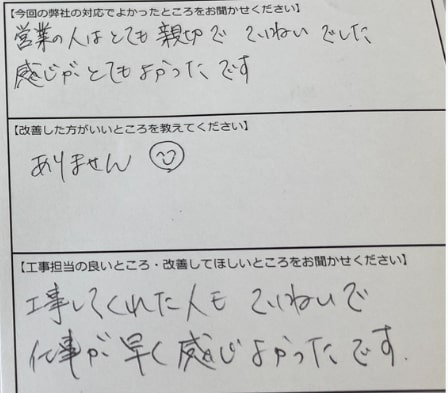 【今回の弊社の対応でよかったところをお聞かせください】
営業の人はとても親切でていねいでした
感じがとてもよかったです
【改善した方がいいところを教えてください】
ありません
【工事担当の良いところ・改善してほしいところをお聞かせください】
工事してくれた人もていねいで
仕事が早く感じよかったです.